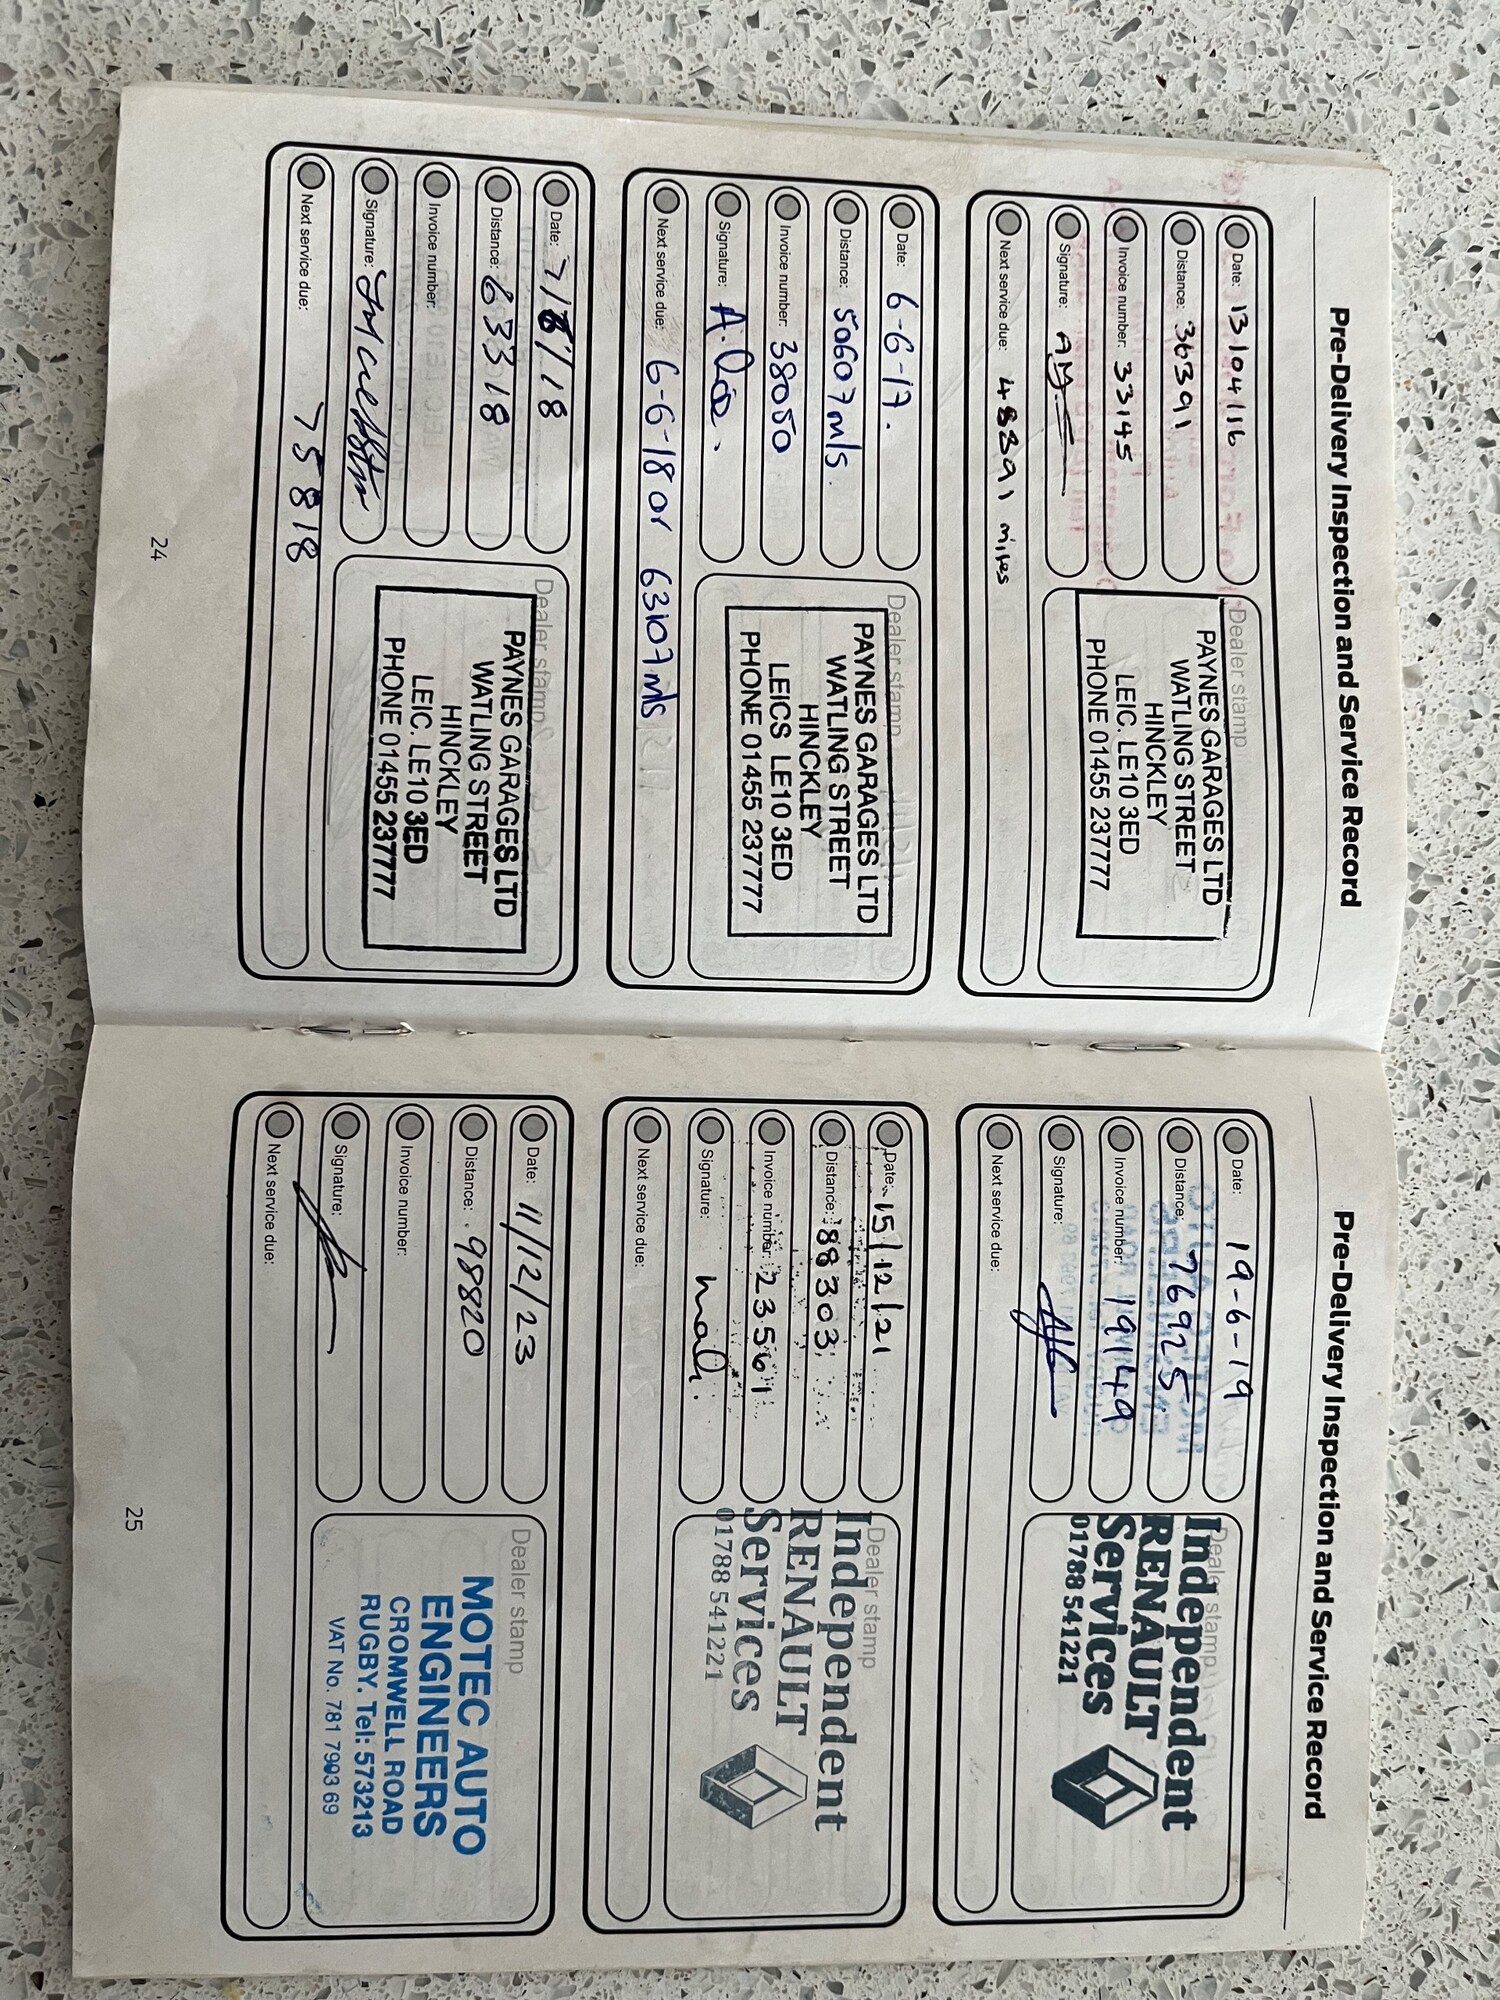 Pre-Delivery Inspection and Service Record
Date: 13/04/16
Distance: 36391
Invoice number: 33145
Signature:
Next service due: 48391 miles
Dealer stamp
PAYNES GARAGES LTD
WATLING STREET
HINCKLEY
LEIC. LE10 3ED
PHONE 01455 237777
Date: 6-6-17.
Distance: 50607 mls.
Invoice number: 38050
Signature:
Next service due: 6-6-18 or 63107 mls
Dealer stamp
PAYNES GARAGES LTD
WATLING STREET
HINCKLEY
LEICS LE10 3ED
PHONE 01455 237777
Date: 7/8/18
Distance: 63318
Invoice number:
Signature:
Next service due: 75818
Dealer stamp
PAYNES GARAGES LTD
WATLING STREET
HINCKLEY
LEIC. LE10 3ED
PHONE 01455 237777
24
Pre-Delivery Inspection and Service Record
Date: 19-6-19
Distance: 76925
Invoice number: 19149
Signature:
Next service due:
Dealer stamp
Independent
RENAULT
Services
01788 541221
Date: 15/12/21
Distance: 88303
Invoice number: 23561
Signature:
Next service due:
Dealer stamp
Independent
RENAULT
Services
01788 541221
Date: 11/12/23
Distance: 98820
Invoice number:
Signature:
Next service due:
Dealer stamp
MOTEC AUTO
ENGINEERS
CROMWELL ROAD
RUGBY. Tel: 573213
VAT No. 781 7993 69
25